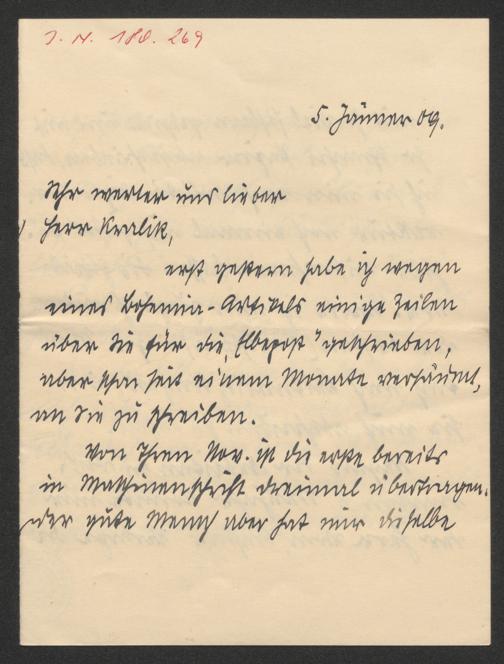 J. N. 180.269
5. Jänner 09.
Sehr werter und lieber
Herr Kralik,
erst gestern habe ich wegen
eines Bohemia-Artikels einige Zeilen
über Sie für die „Elbepost" geschrieben,
aber schon seit einem Monate versäumt,
an Sie zu schreiben.
Von Ihren Nov. ist die erste bereits
in Maschinenschrift dreimal übertragen.
Der gute Mensch aber hat mir dieselbe